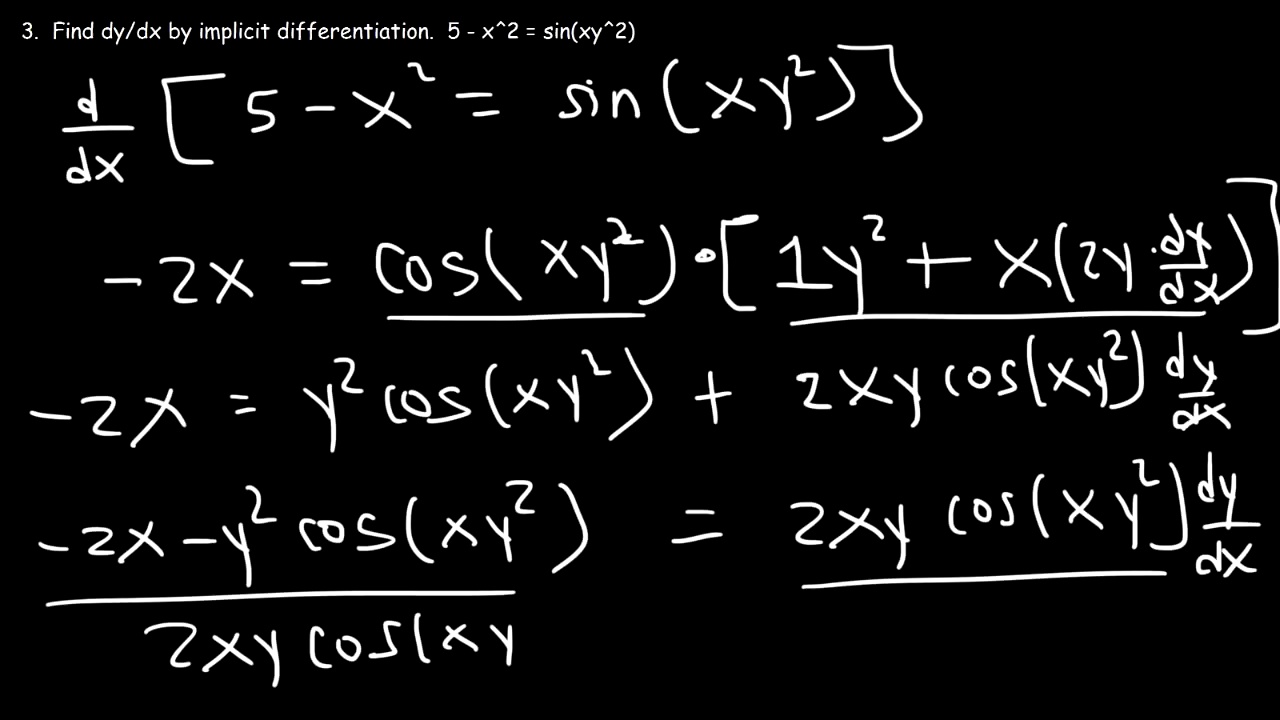 3. Find dy/dx by implicit differentiation. 5 - x^2 = sin(xy^2)
d/dx [5 - x² = sin(xy²)]
-2x = cos(xy²) · [1y² + x(2y · dx/dx)]
-2x = y² cos(xy²) + 2xy cos(xy²) dy/dx
-2x - y² cos(xy²) = 2xy cos(xy²) dy/dx
2xy cos(xy